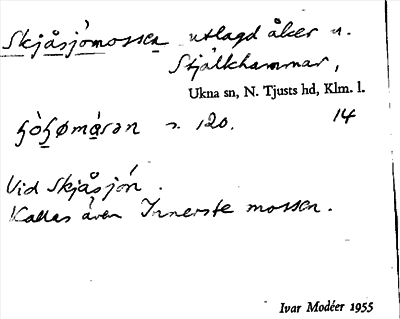 Skjåsjömossen utlagd åker u.
Stjälkhammar,
Ukna sn, N. Tjusts hd, Klm. l.
s. 120. 14
Vid Skjåsjön.
Kallas även Innerste mossen.
Ivar Modéer 1955